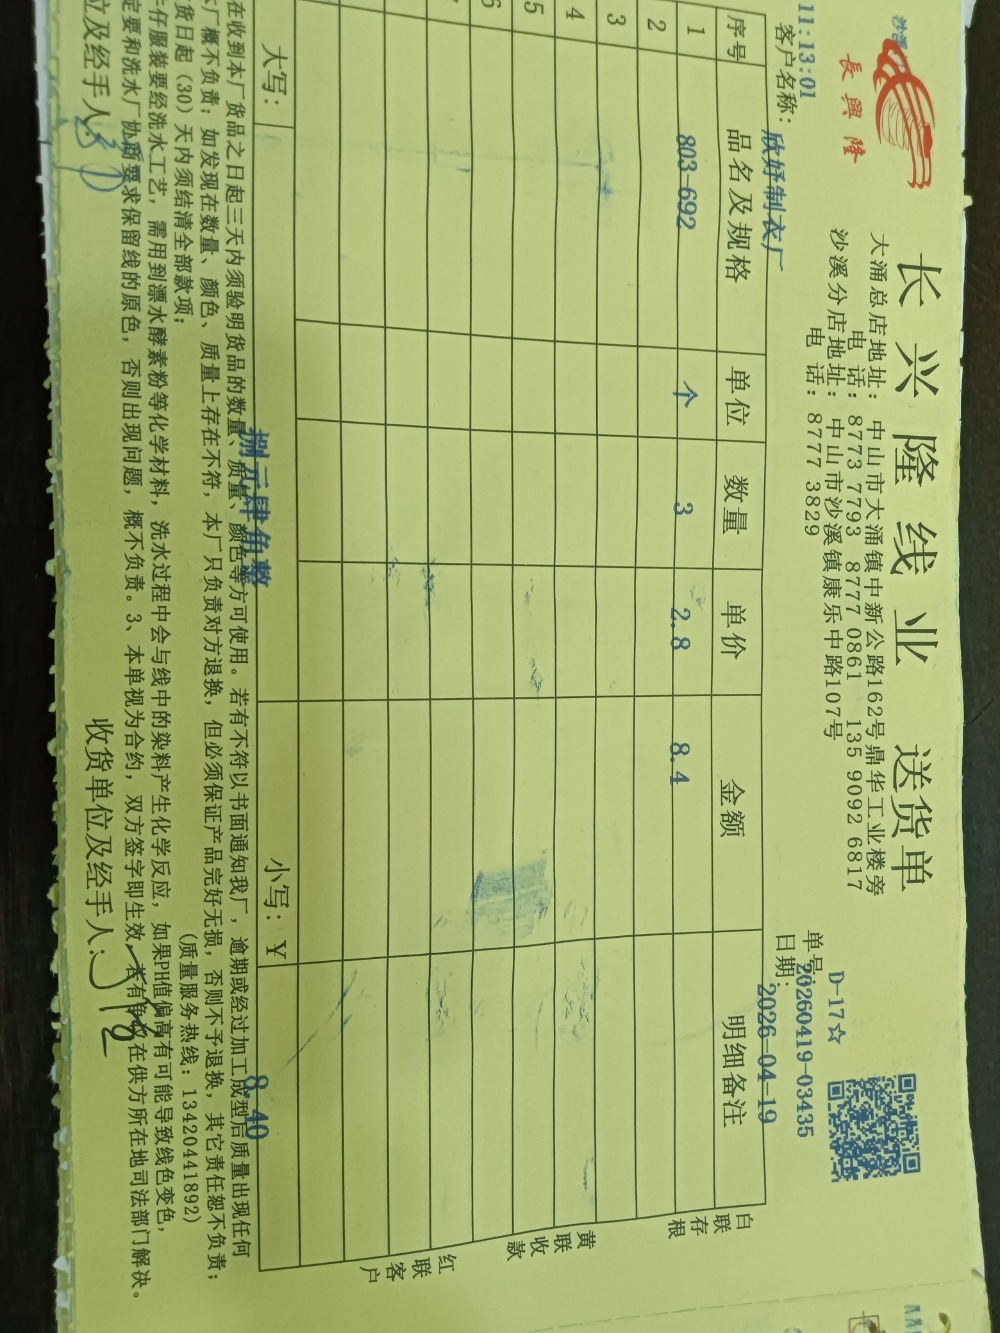 沙溪
長興隆
长兴隆线业 送货单
大涌总店地址：中山市大涌镇中新公路162号鼎华工业楼旁
电话：8773 7793 8777 0861 135 9092 6817
沙溪分店地址：中山市沙溪镇康乐中路107号
电话：8777 3829
D-17☆
单号：20260419-03435
日期：2026-04-19
11:13:01
客户名称：欣妤制衣厂
序号 品名及规格 单位 数量 单价 金额 明细备注
1 803-692 个 3 2.8 8.4
2
3
4
5
6
大写：捌元肆角整 小写：￥8.40
白联存根
黄联收款
红联客户
在收到本厂货品之日起三天内须验明货品的数量、质量、颜色等方可使用。若有不符以书面通知我厂，逾期或经过加工成型后质量出现任何
本厂概不负责；如发现在数量、颜色、质量上存在不符，本厂只负责对方退换，但必须保证产品完好无损，否则不予退换，其它责任恕不负责；
货日起（30）天内须结清全部款项； （质量服务热线：13420441892）
牛仔服装要经洗水工艺，需用到漂水酵素粉等化学材料，洗水过程中会与线中的染料产生化学反应，如果PH值偏高有可能导致线色变色，
定要和洗水厂协商要求保留线的原色，否则出现问题，概不负责。3、本单视为合约，双方签字即生效，若有争议在供方所在地司法部门解决。
位及经手人： 收货单位及经手人：